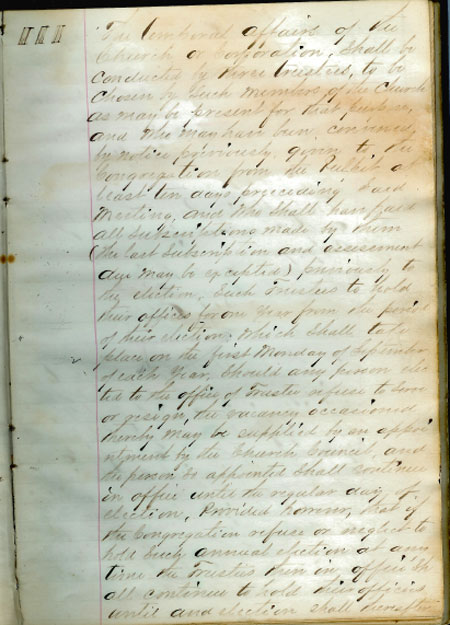 III
The temporal affairs of the
Church or Corporation, Shall be
conducted by three trustees, to be
chosen by Such members of the Church
as may be present for that purpose,
and Who may have been convened
by notice previously given to the
Congregation from the Pulpit at
least ten days preceeding Said
meeting, and Who Shall have paid
all Subscriptions made by them
(the last Subscription and assessment
due may be excepted) previously to
the election, Such Trustees to hold
their offices for one Year from the period
of their election, Which Shall take
place on the first Monday of September
of each Year, Should any person elec
ted to the office of Trustee refuse to Serve
or resign, the vacancy occasioned
thereby may be supplied by an appoi
ntment by the Church Council, and
the person So appointed Shall continue
in office until the regular day of
election, Provided however, that if
the Congregation refuse or neglect to
hold Such annual election at any
time the Trustees then in office Sh
all continue to hold their offices
until and election Shall thereafter